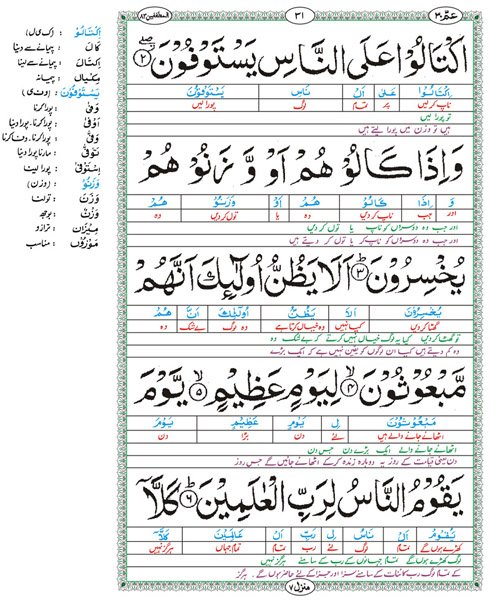 عمّ ۳۰
۳۱
المطففين ۸۳
اكْتَالُوْا عَلَى النَّاسِ يَسْتَوْفُوْنَ ۞ۖ ۲
اِكْتَالُوْا عَلىٰ اَلْ نَاسِ يَسْتَوْفُوْنَ
ناپ کر لیں پر تمام لوگ پورا لیں
تو پورا لیں
ہیں تو وزن میں پورا لیتے ہیں
وَاِذَا كَالُوْ هُمْ اَوْ وَّ زَنُوْ هُمْ
وَ اِذَا كَالُوْ هُمْ اَوْ وَزَنُوْ هُمْ
اور جب ناپ کر دیں وہ یا تول کر دیں وہ
اور جب وہ دوسروں کو ناپ یا تول کر دیں
اور جب وہ دوسروں کو ناپ کر یا تول کر دیتے ہیں
يُخْسِرُوْنَ ۳ اَلَا يَظُنُّ اُولٰٓئِكَ اَنَّهُمْ
يُخْسِرُوْنَ اَلَا يَظُنُّ اُولٰٓئِكَ اَنَّ هُمْ
گھٹا کر دیں کیا نہیں وہ خیال کرتا ہے وہ لوگ بے شک وہ
تو گھٹا کر دیں کیا یہ لوگ خیال نہیں کرتے کہ بے شک وہ
وہ کم دیتے ہیں کیا ان لوگوں کو یقین نہیں ہے کہ ایک بڑے
مَّبْعُوْثُوْنَ ۴ لِيَوْمٍ عَظِيْمٍ ۵ يَّوْمَ
مَبْعُوْثُوْنَ لِ يَوْمٍ عَظِيْمٍ يَوْمَ
اٹھائے جانے والے ہیں لئے دن بڑا دن
اٹھائے جانے والے ایک بڑے دن جس دن
دن یعنی قیامت کے روز یہ دوبارہ زندہ کر کے اٹھائے جائیں گے جس روز
يَقُوْمُ النَّاسُ لِرَبِّ الْعٰلَمِيْنَ ۶ كَلَّآ
يَقُوْمُ اَلْ نَاسُ لِ رَبِّ اَلْ عَالَمِيْنَ كَلَّآ
کھڑے ہوں گے تمام لوگ لئے رب تمام جہاں ہرگز نہیں
لوگ کھڑے ہوں گے تمام جہانوں کے رب کے سامنے ہرگز نہیں
کے تمام لوگ رب کائنات کے سامنے سزا اور جزا کے لئے حاضر ہوں گے ہرگز
منزل ۷
اِكْتَالُوْ : (ك ی ل)
كَالَ : پیمانے سے دینا
اِكْتَالَ : پیمانے سے لینا
مِكْيَال : پیمانہ
يَسْتَوْفُوْنَ : (و ف ی)
وَفٰى : پورا کرنا
اَوْفٰى : پورا کرنا۔ پورا دینا
وَفّٰى : پورا کرنا۔ وفا کرنا
تَوَفّٰى : مارنا پورا دینا
اِسْتَوْفٰى : پورا لینا
وَزَنُوْ : (و ز ن)
وَزَنَ : تولنا
وَزْنٌ : بوجھ
مِيْزَان : ترازو
مَوْزُوْن : مناسب